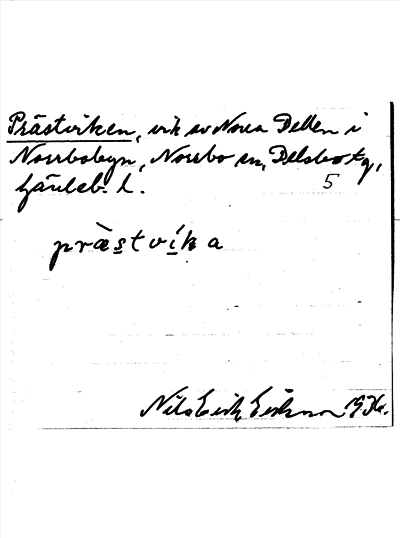 Prästviken, vik av Norra Dellen i
Norrbobyn, Norrbo sn, Delsbo tg,
Gävleb. l. 5
præstvíka
Nils Erik Eriksson 1936.